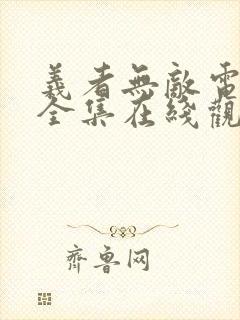 義者無敵電
全集在綫觀
齊魯网